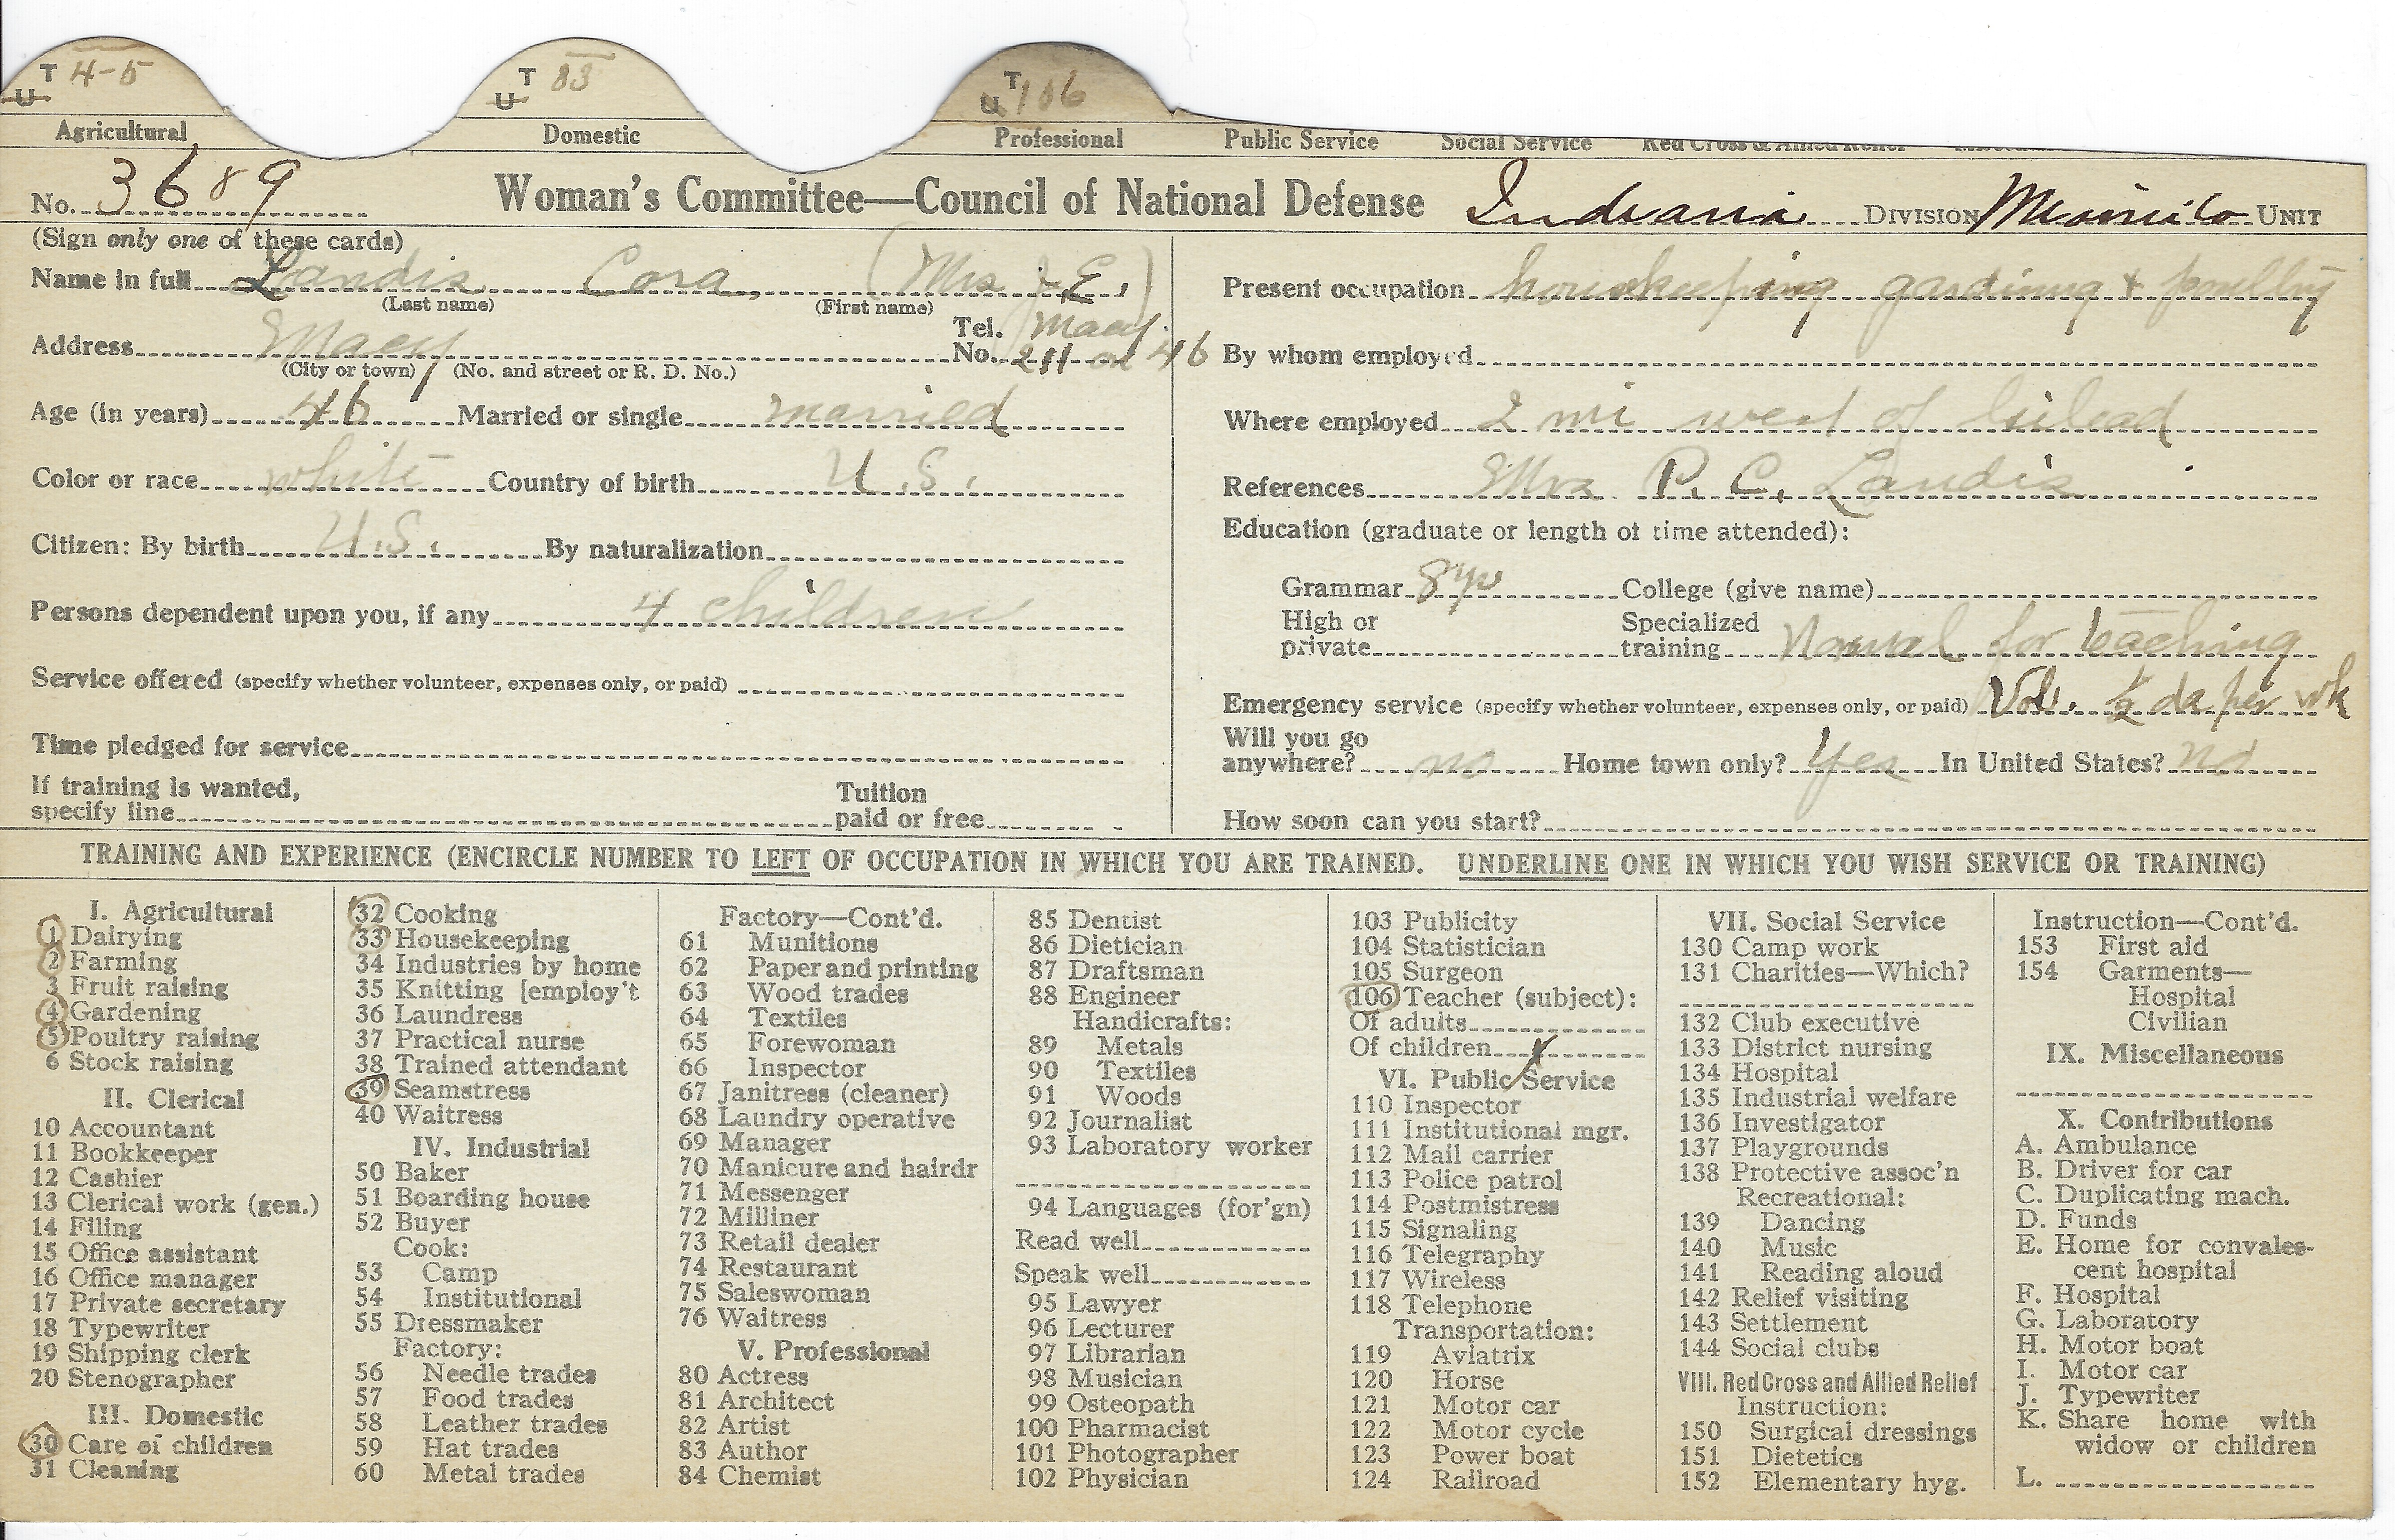 T 4-5 T 83 T 106
U U U
Agricultural Domestic Professional Public Service Social Service Red Cross & Allied Relief
No. 3689 Woman's Committee—Council of National Defense Indiana DIVISION UNIT
(Sign only one of these cards)
Name in full Landis Cora, (Mrs J. E.)
(Last name) (First name)
Address Macy Tel. No. Macy 211 or 46
(City or town) (No. and street or R. D. No.)
Age (in years) 46 Married or single married
Color or race white Country of birth U.S.
Citizen: By birth U.S. By naturalization
Persons dependent upon you, if any 4 children
Service offered (specify whether volunteer, expenses only, or paid)
Time pledged for service
If training is wanted,
specify line Tuition paid or free
Present occupation housekeeping gardining & poultry
By whom employed
Where employed 2 mi west of Gilead
References Mrs P. C. Landis
Education (graduate or length of time attended):
Grammar 8 yr College (give name)
High or private Specialized training Normal for teaching
Emergency service (specify whether volunteer, expenses only, or paid) Vol. ½ da per wk
Will you go anywhere? no Home town only? Yes In United States? no
How soon can you start?
TRAINING AND EXPERIENCE (ENCIRCLE NUMBER TO LEFT OF OCCUPATION IN WHICH YOU ARE TRAINED. UNDERLINE ONE IN WHICH YOU WISH SERVICE OR TRAINING)
I. Agricultural
1 Dairying
2 Farming
3 Fruit raising
4 Gardening
5 Poultry raising
6 Stock raising
II. Clerical
10 Accountant
11 Bookkeeper
12 Cashier
13 Clerical work (gen.)
14 Filing
15 Office assistant
16 Office manager
17 Private secretary
18 Typewriter
19 Shipping clerk
20 Stenographer
III. Domestic
30 Care of children
31 Cleaning
32 Cooking
33 Housekeeping
34 Industries by home
35 Knitting [employ't
36 Laundress
37 Practical nurse
38 Trained attendant
39 Seamstress
40 Waitress
IV. Industrial
50 Baker
51 Boarding house
52 Buyer
Cook:
53 Camp
54 Institutional
55 Dressmaker
Factory:
56 Needle trades
57 Food trades
58 Leather trades
59 Hat trades
60 Metal trades
Factory—Cont'd.
61 Munitions
62 Paper and printing
63 Wood trades
64 Textiles
65 Forewoman
66 Inspector
67 Janitress (cleaner)
68 Laundry operative
69 Manager
70 Manicure and hairdr
71 Messenger
72 Milliner
73 Retail dealer
74 Restaurant
75 Saleswoman
76 Waitress
V. Professional
80 Actress
81 Architect
82 Artist
83 Author
84 Chemist
85 Dentist
86 Dietician
87 Draftsman
88 Engineer
Handicrafts:
89 Metals
90 Textiles
91 Woods
92 Journalist
93 Laboratory worker
94 Languages (for'gn)
Read well
Speak well
95 Lawyer
96 Lecturer
97 Librarian
98 Musician
99 Osteopath
100 Pharmacist
101 Photographer
102 Physician
103 Publicity
104 Statistician
105 Surgeon
106 Teacher (subject):
Of adults
Of children X
VI. Public Service
110 Inspector
111 Institutional mgr.
112 Mail carrier
113 Police patrol
114 Postmistress
115 Signaling
116 Telegraphy
117 Wireless
118 Telephone
Transportation:
119 Aviatrix
120 Horse
121 Motor car
122 Motor cycle
123 Power boat
124 Railroad
VII. Social Service
130 Camp work
131 Charities—Which?
132 Club executive
133 District nursing
134 Hospital
135 Industrial welfare
136 Investigator
137 Playgrounds
138 Protective assoc'n
Recreational:
139 Dancing
140 Music
141 Reading aloud
142 Relief visiting
143 Settlement
144 Social clubs
VIII. Red Cross and Allied Relief
Instruction:
150 Surgical dressings
151 Dietetics
152 Elementary hyg.
Instruction—Cont'd.
153 First aid
154 Garments—
Hospital
Civilian
IX. Miscellaneous
X. Contributions
A. Ambulance
B. Driver for car
C. Duplicating mach.
D. Funds
E. Home for convales-
cent hospital
F. Hospital
G. Laboratory
H. Motor boat
I. Motor car
J. Typewriter
K. Share home with
widow or children
L.